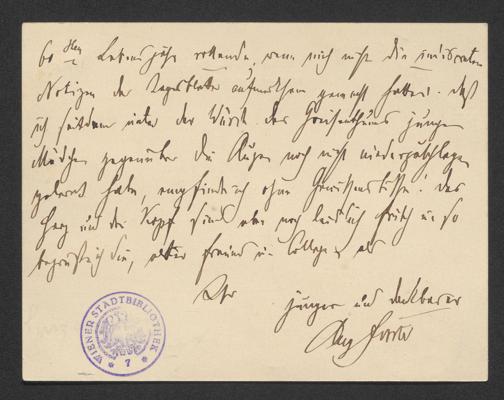 60sten Lebensjahr vollende, wenn mich nicht die indiscreten
Notizen der Tagesblätter aufmerksam gemacht hätten. Daß
ich seitdem unter der Würde des Greisenthums jungen
Mädchen gegenüber die Augen noch nicht niederzuschlagen
gelernt habe, empfinde ich ohne Gewissensbisse! Das
Herz und der Kopf sind aber noch leidlich frisch u. so
begrüße ich Sie, alter Freund u. College, als
Ihr
junger und dankbarer
Aug Förster
WIENER STADTBIBLIOTHEK
* 7 *